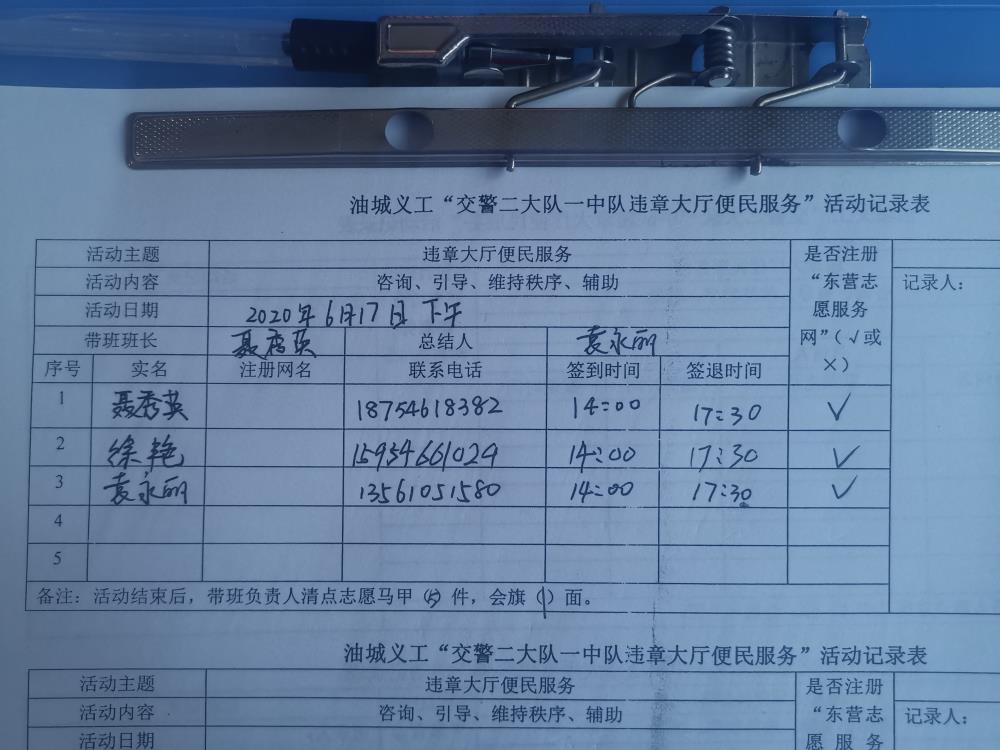 油城义工“交警二大队一中队违章大厅便民服务”活动记录表
活动主题 违章大厅便民服务 是否注册“东营志愿服务网”（√或×） 记录人：
活动内容 咨询、引导、维持秩序、辅助
活动日期 2020年6月17日下午
带班班长 聂秀英 总结人 袁永丽
序号 实名 注册网名 联系电话 签到时间 签退时间
1 聂秀英 18754618382 14:00 17:30 √
2 徐艳 15954661029 14:00 17:30 √
3 袁永丽 13561051580 14:00 17:30 √
4
5
备注：活动结束后，带班负责人清点志愿马甲（5）件，会旗（1）面。
油城义工“交警二大队一中队违章大厅便民服务”活动记录表
活动主题 违章大厅便民服务 是否注册
活动内容 咨询、引导、维持秩序、辅助 “东营志 记录人：
活动日期 愿服务